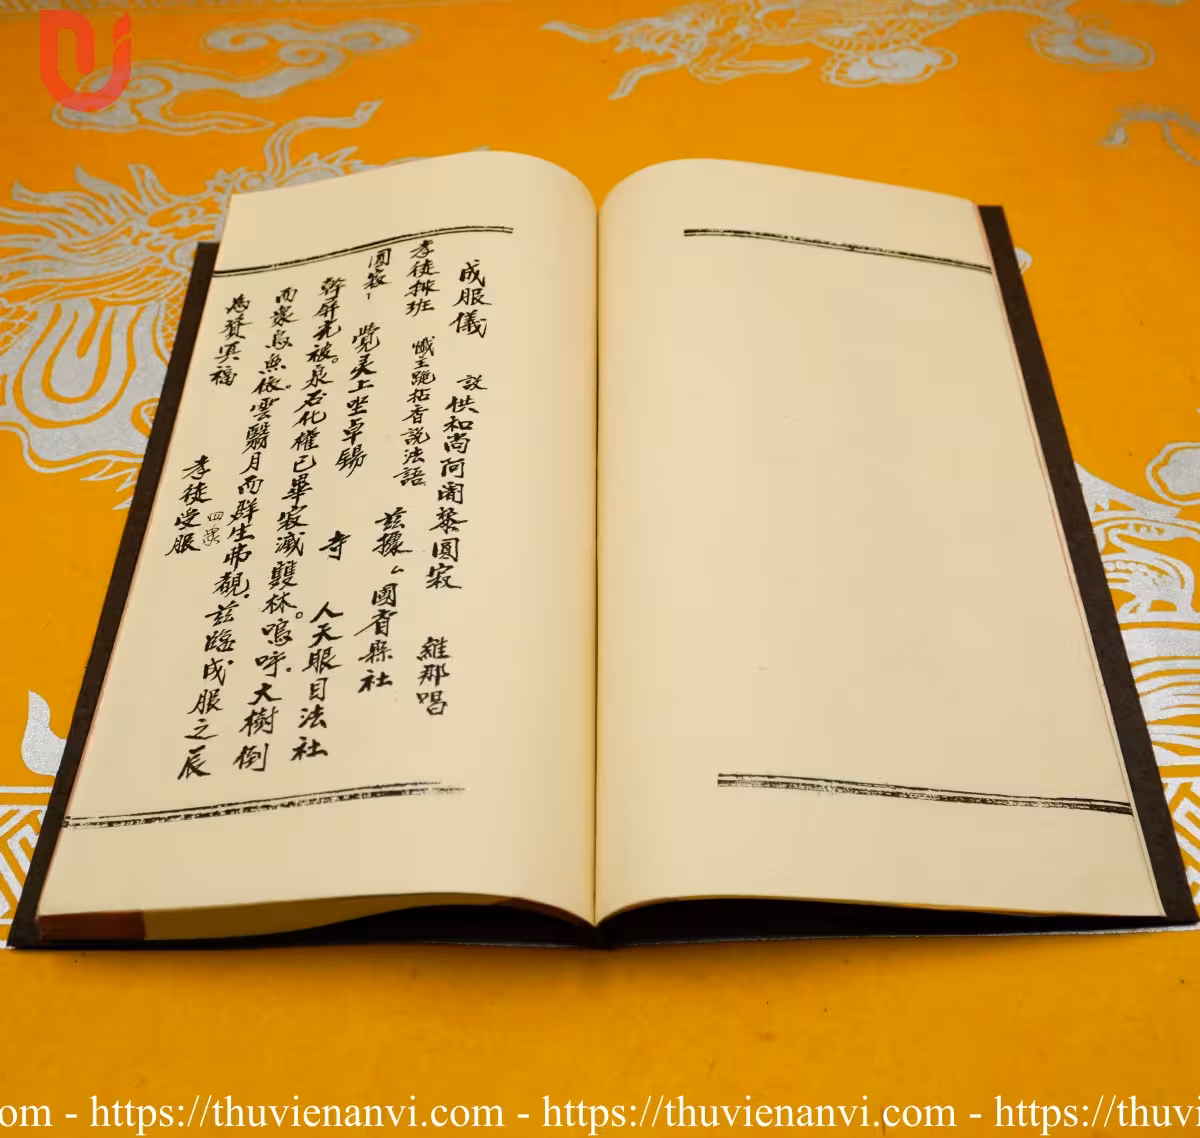 成服儀 設供和尚阿闍黎圓寂 維那唱
孝徒排班 懺主跪拈香説法語
圓寂 覺灵上坐卓錫 茲據 國省縣社
幹屏光被。泉石化權已畢寂滅雙林。嗚呼.大樹倒
寺 人天眼目法社
而衆鳥無依。雲翳月而群生弗覩.茲臨成服之辰
為資冥福
孝徒四衆受服
https://thuvienanvi.com - https://thuvienanvi.com - https://thuvi